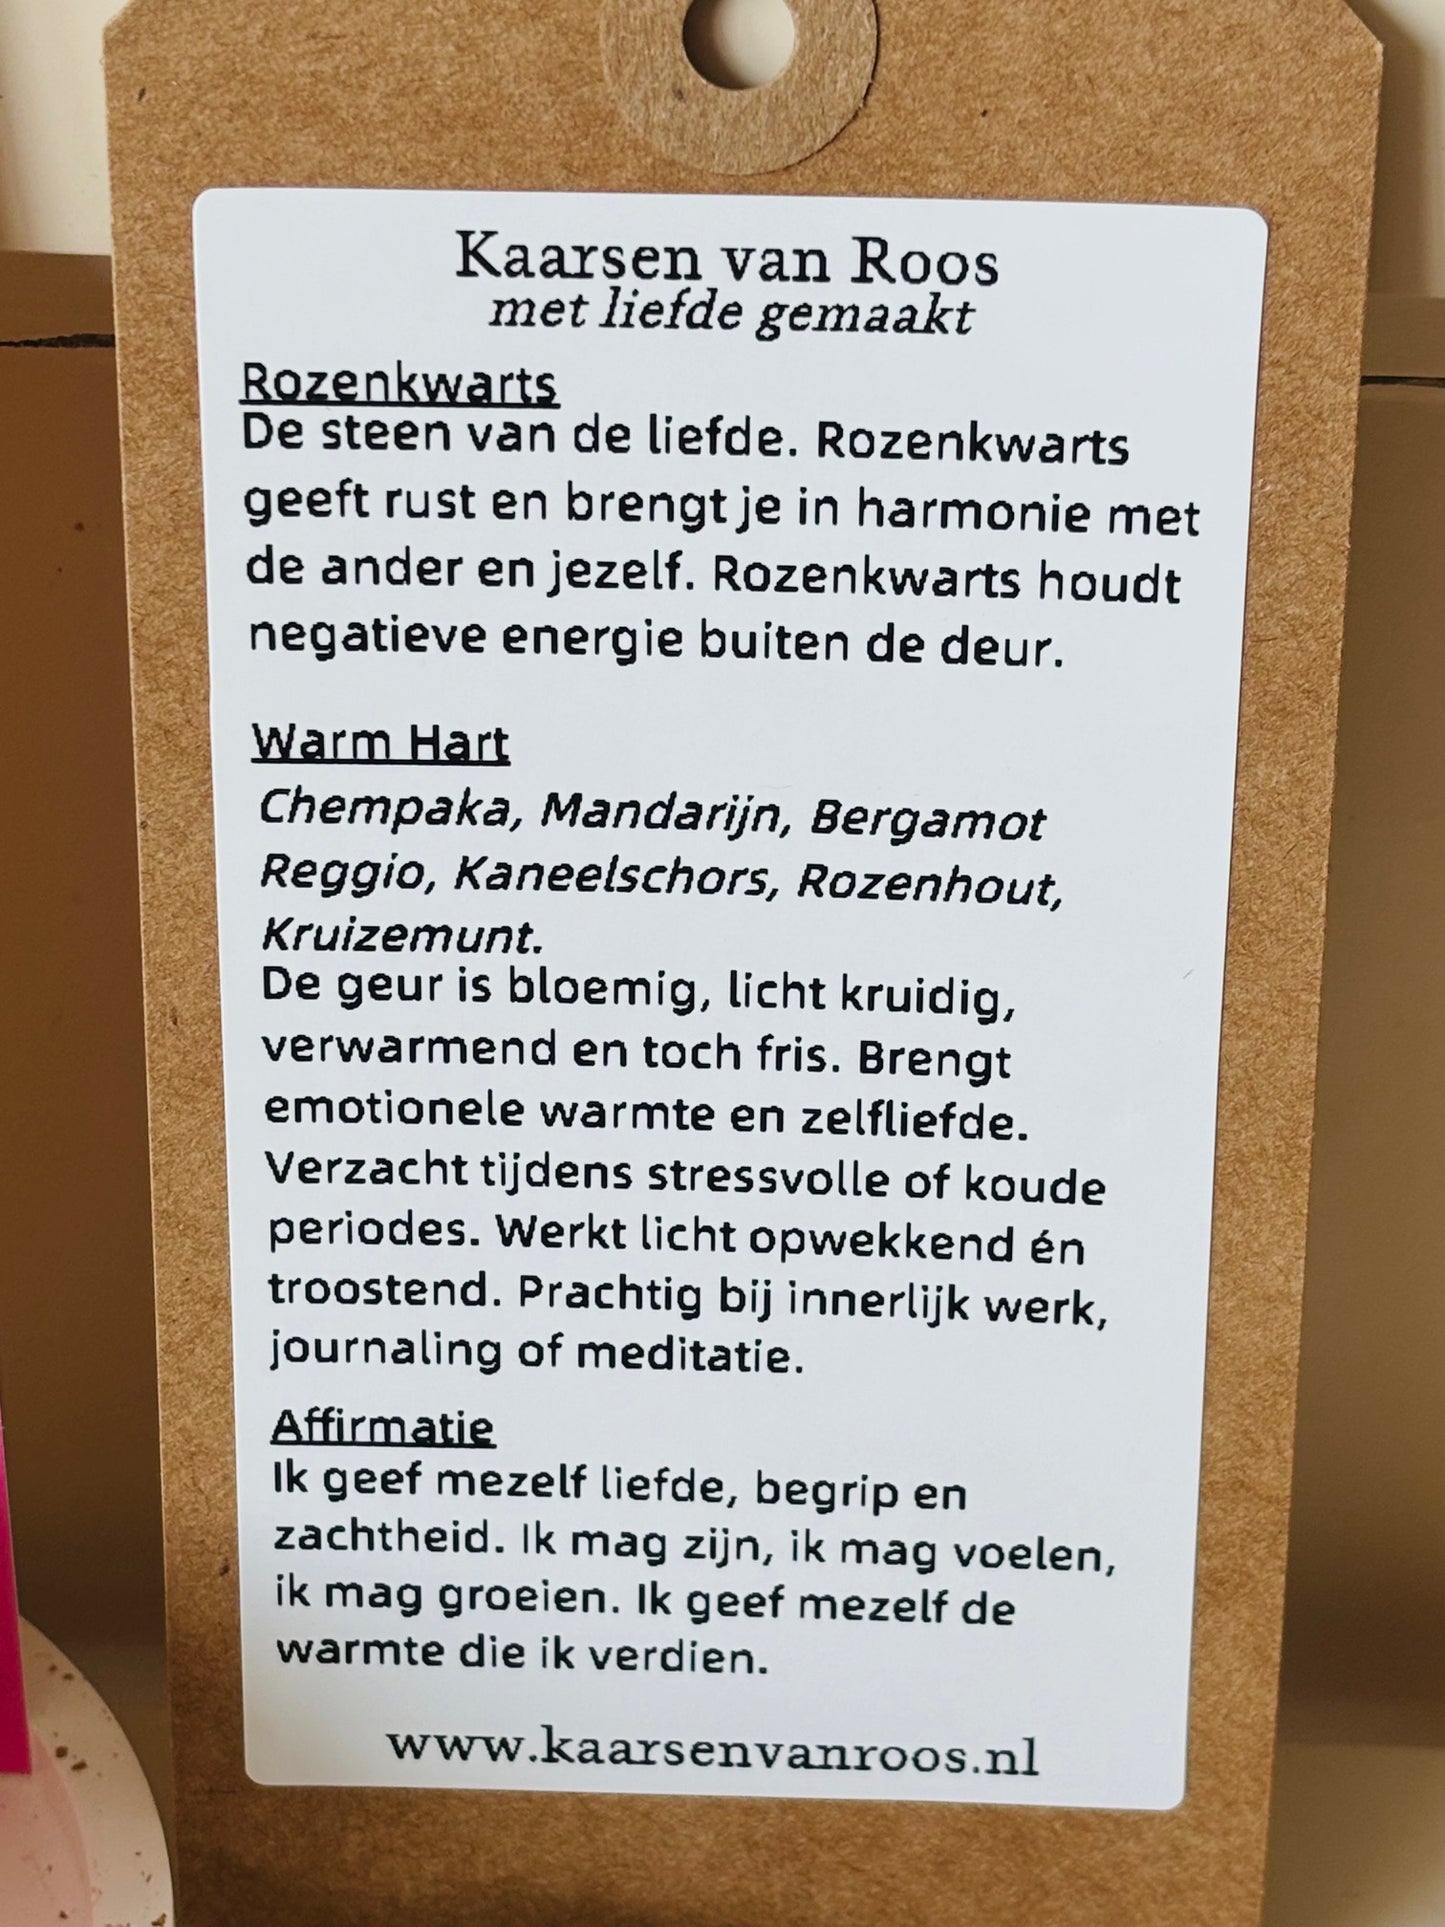 Kaarsen van Roos
met liefde gemaakt
Rozenkwarts
De steen van de liefde. Rozenkwarts
geeft rust en brengt je in harmonie met
de ander en jezelf. Rozenkwarts houdt
negatieve energie buiten de deur.
Warm Hart
Chempaka, Mandarijn, Bergamot
Reggio, Kaneelschors, Rozenhout,
Kruizemunt.
De geur is bloemig, licht kruidig,
verwarmend en toch fris. Brengt
emotionele warmte en zelfliefde.
Verzacht tijdens stressvolle of koude
periodes. Werkt licht opwekkend én
troostend. Prachtig bij innerlijk werk,
journaling of meditatie.
Affirmatie
Ik geef mezelf liefde, begrip en
zachtheid. Ik mag zijn, ik mag voelen,
ik mag groeien. Ik geef mezelf de
warmte die ik verdien.
www.kaarsenvanroos.nl